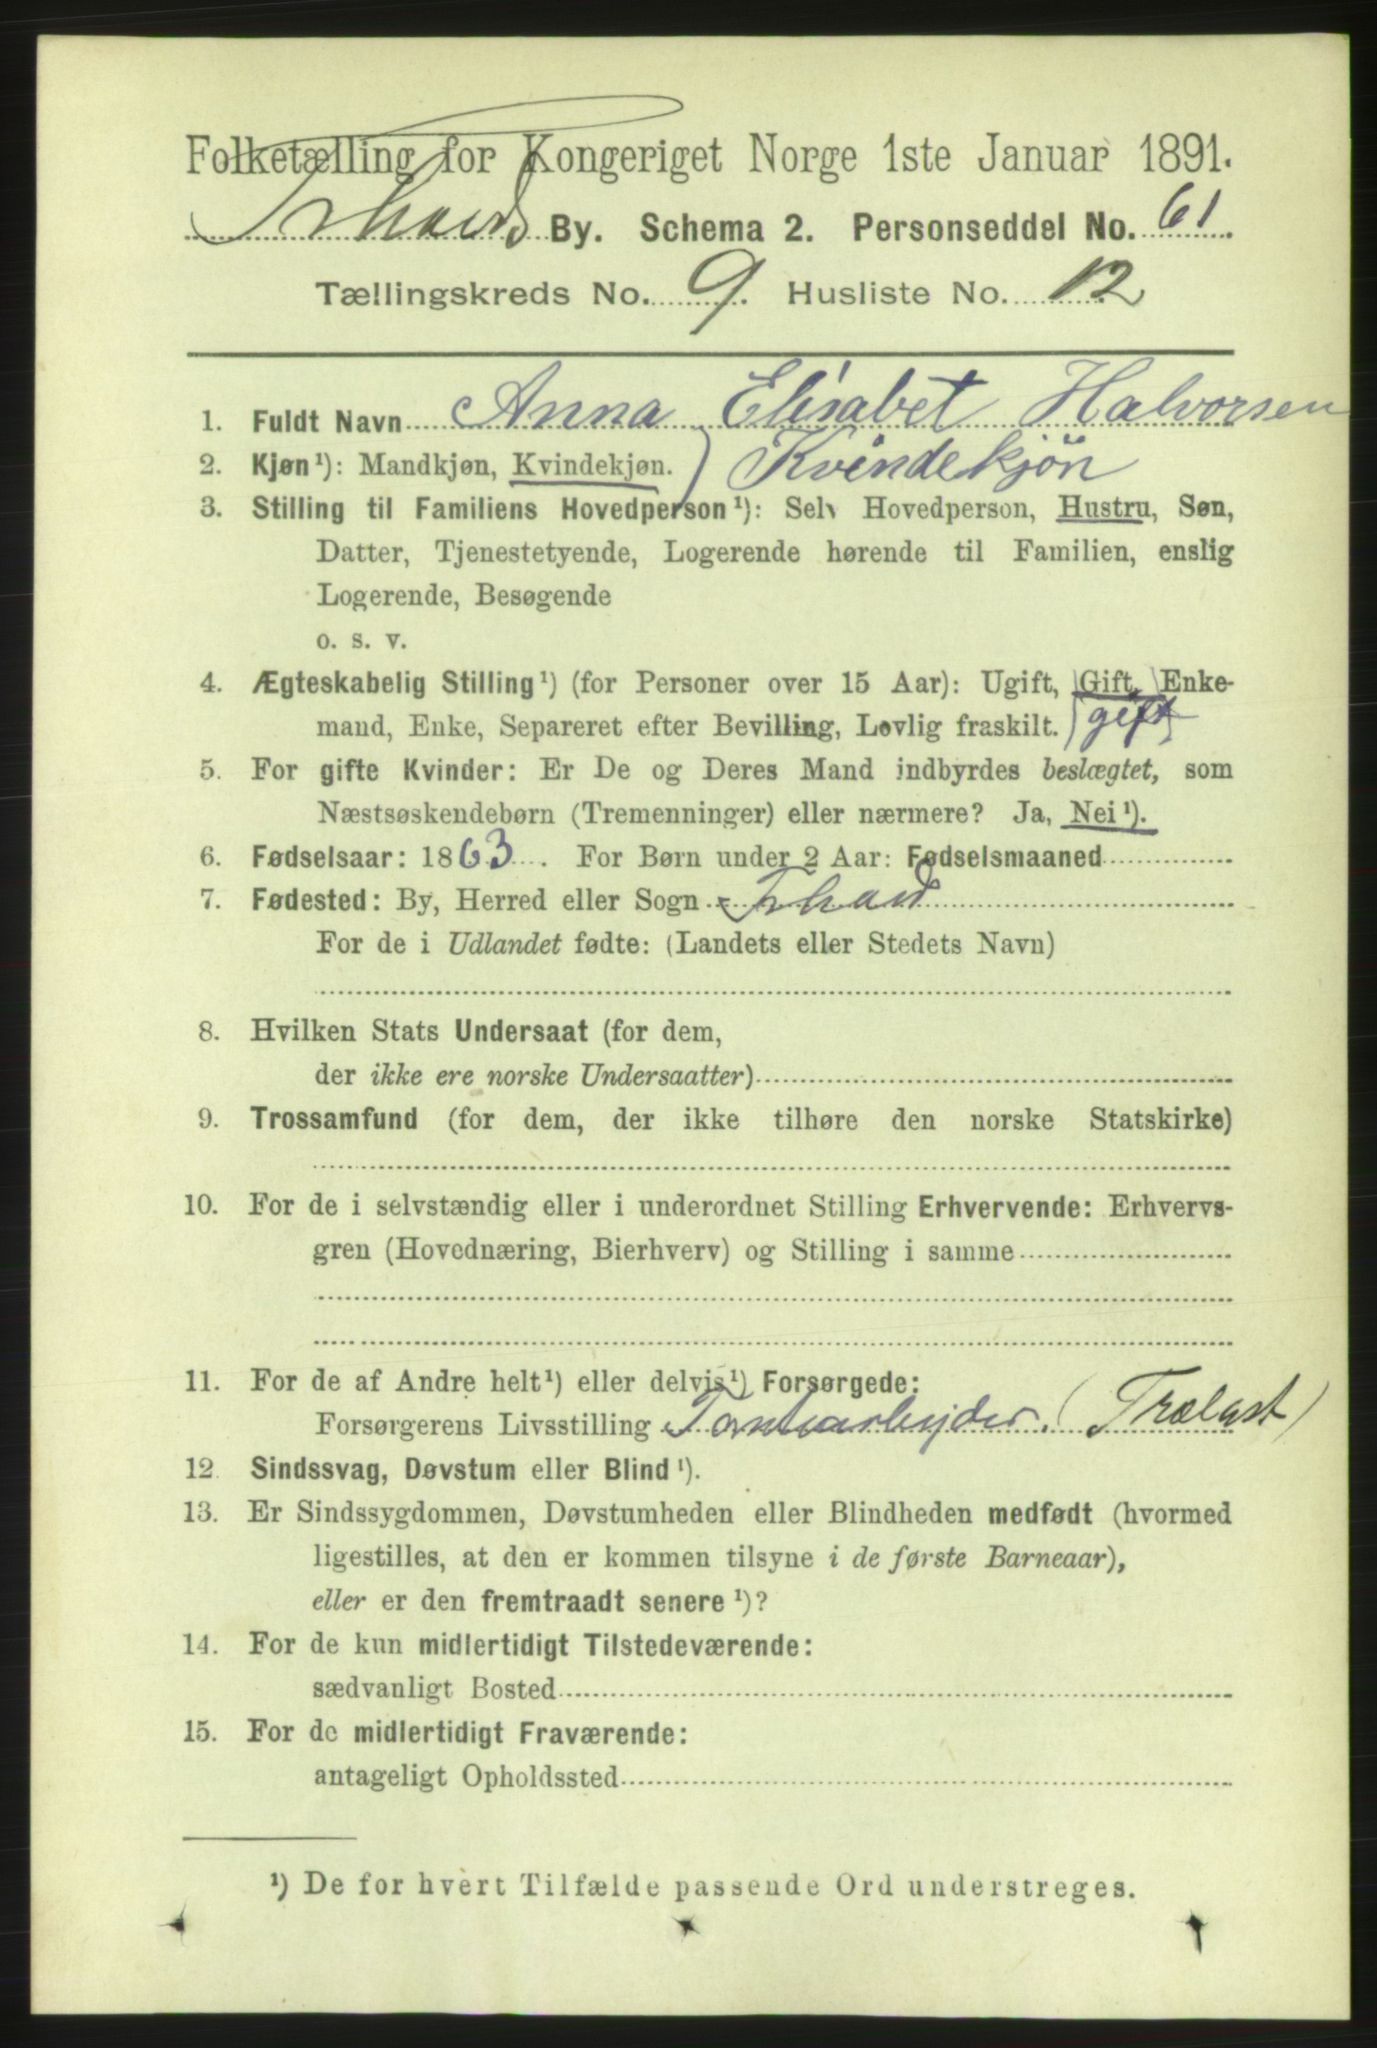 Folketælling for Kongeriget Norge 1ste Januar 1891.
By. Schema 2. Personseddel No. 61.
Tællingskreds No. 9. Husliste No. 12
1. Fuldt Navn Anna Elisabet Halvorsen
2. Kjøn¹): Mandkjøn, Kvindekjøn. ) Kvindekjön
3. Stilling til Familiens Hovedperson¹): Selv Hovedperson, Hustru, Søn,
Datter, Tjenestetyende, Logerende hørende til Familien, enslig
Logerende, Besøgende
o. s. v.
4. Ægteskabelig Stilling¹) (for Personer over 15 Aar): Ugift, Gift, Enke-
mand, Enke, Separeret efter Bevilling, Lovlig fraskilt. gift
5. For gifte Kvinder: Er De og Deres Mand indbyrdes beslægtet, som
Næstsøskendebørn (Tremenninger) eller nærmere? Ja, Nei¹).
6. Fødselsaar: 1863. For Børn under 2 Aar: Fødselsmaaned
7. Fødested: By, Herred eller Sogn Frhald
For de i Udlandet fødte: (Landets eller Stedets Navn)
8. Hvilken Stats Undersaat (for dem,
der ikke ere norske Undersaatter)
9. Trossamfund (for dem, der ikke tilhøre den norske Statskirke)
10. For de i selvstændig eller i underordnet Stilling Erhvervende: Erhvervs-
gren (Hovednæring, Bierhverv) og Stilling i samme
11. For de af Andre helt¹) eller delvis¹) Forsørgede:
Forsørgerens Livsstilling Tomtearbejder. (Trælast)
12. Sindssvag, Døvstum eller Blind¹).
13. Er Sindssygdommen, Døvstumheden eller Blindheden medfødt (hvormed
ligestilles, at den er kommen tilsyne i de første Barneaar),
eller er den fremtraadt senere¹)?
14. For de kun midlertidigt Tilstedeværende:
sædvanligt Bosted
15. For de midlertidigt Fraværende:
antageligt Opholdssted
¹) De for hvert Tilfælde passende Ord understreges.